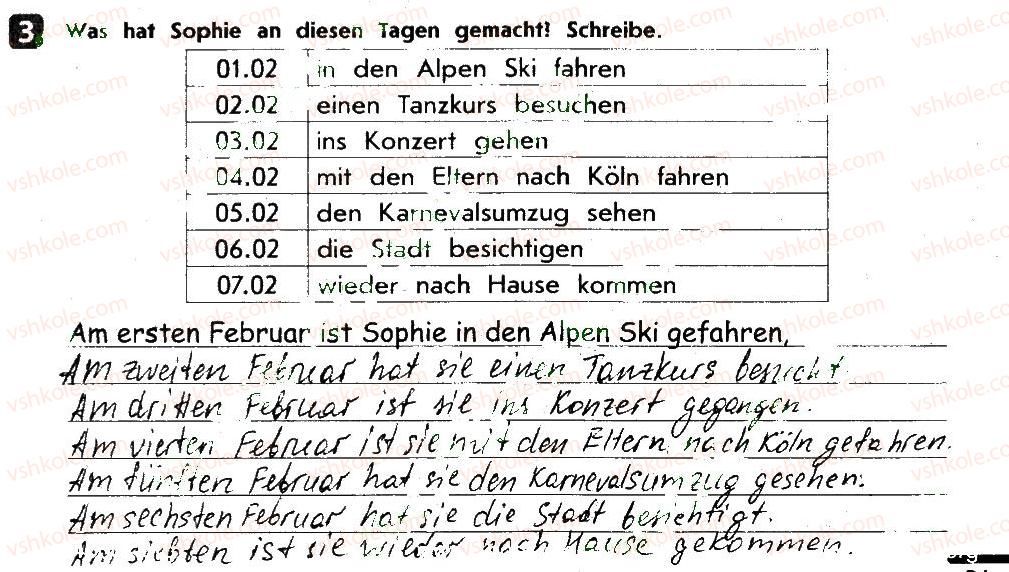 3 Was hat Sophie an diesen Tagen gemacht? Schreibe.
01.02 in den Alpen Ski fahren
02.02 einen Tanzkurs besuchen
03.02 ins Konzert gehen
04.02 mit den Eltern nach Köln fahren
05.02 den Karnevalsumzug sehen
06.02 die Stadt besichtigen
07.02 wieder nach Hause kommen
Am ersten Februar ist Sophie in den Alpen Ski gefahren,
Am zweiten Februar hat sie einen Tanzkurs besucht.
Am dritten Februar ist sie ins Konzert gegangen.
Am vierten Februar ist sie mit den Eltern nach Köln gefahren.
Am fünften Februar hat sie den Karnevalsumzug gesehen.
Am sechsten Februar hat sie die Stadt besichtigt.
Am siebten ist sie wieder nach Hause gekommen.
vshkole.com